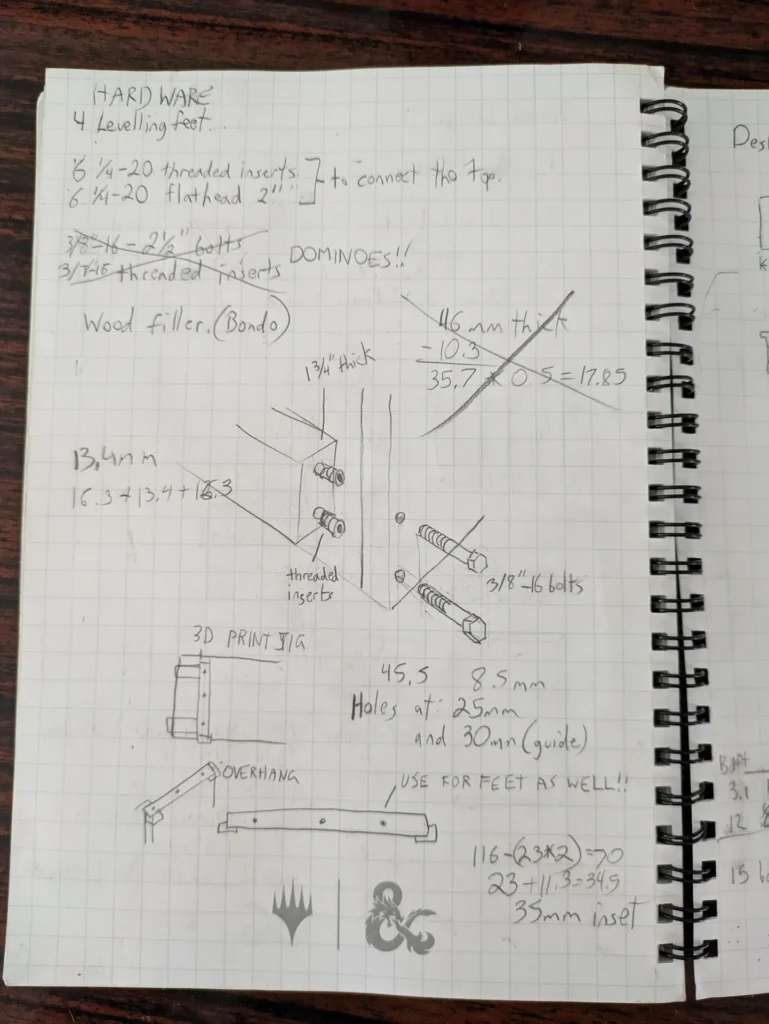 HARDWARE
4 Levelling feet.
6 1/4-20 threaded inserts.
6 1/4-20 flathead 2"
to connect the top.
3/8"-16 - 2 1/2" bolts
threaded inserts
DOMINOES!!
Wood filler. (Bondo)
46 mm thick
-10.3
35.7 x 0.5 = 17.85
1 3/4" thick
13,4mm
16.3 + 13.4 + 16.3
threaded
inserts
3/8"-16 bolts
3D PRINT JIG
45,5 8.5mm
Holes at: 25mm
and 30mm (guide)
OVERHANG
USE FOR FEET AS WELL!!
116-(23*2)=70
23+11.3=34.5
35mm inset
Des
3.1
12
15